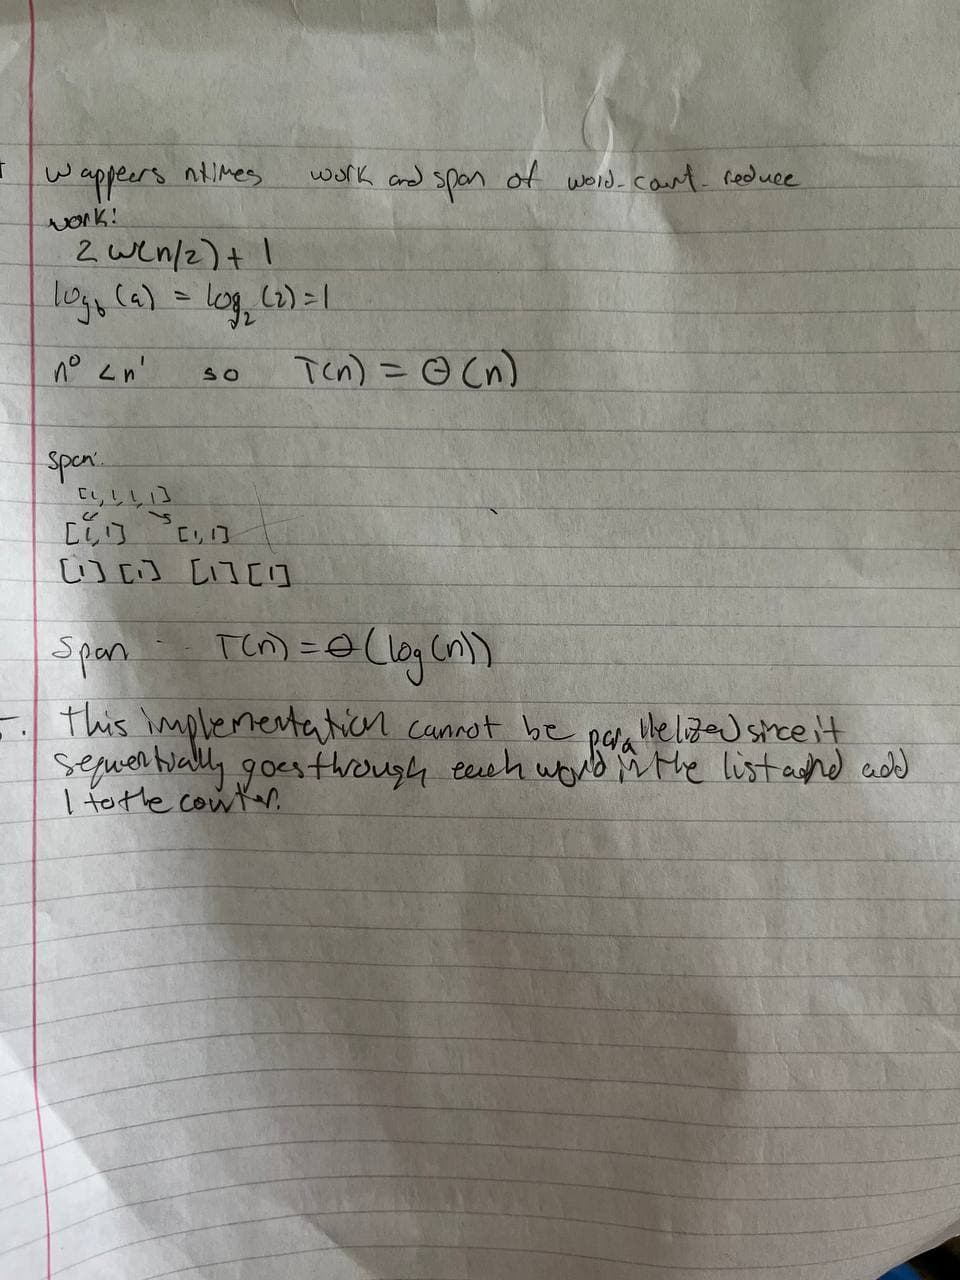 w appeers ntimes work and span of word-count-reduce
work:
2 W(n/2) + 1
log_b (a) = log_2 (2) = 1
n⁰ < n¹ so T(n) = Θ(n)
span:
[1, 1, 1, 1]
[1, 1] [1, 1]
[1] [1] [1] [1]
Span T(n) = Θ(log(n))
. This implementation cannot be parallelized since it
sequentially goes through each word in the list and add
1 to the counter.